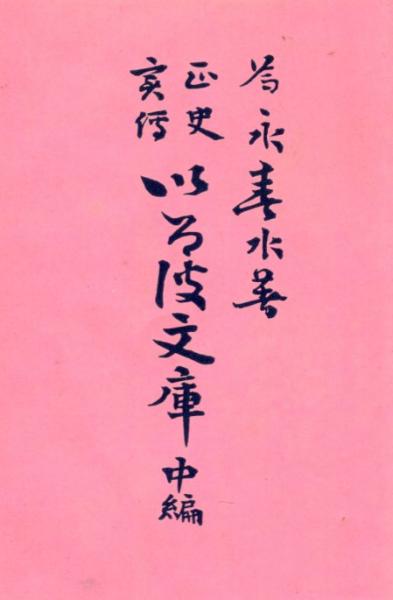 為永春水著
正史
実傳
以呂波文庫 中編